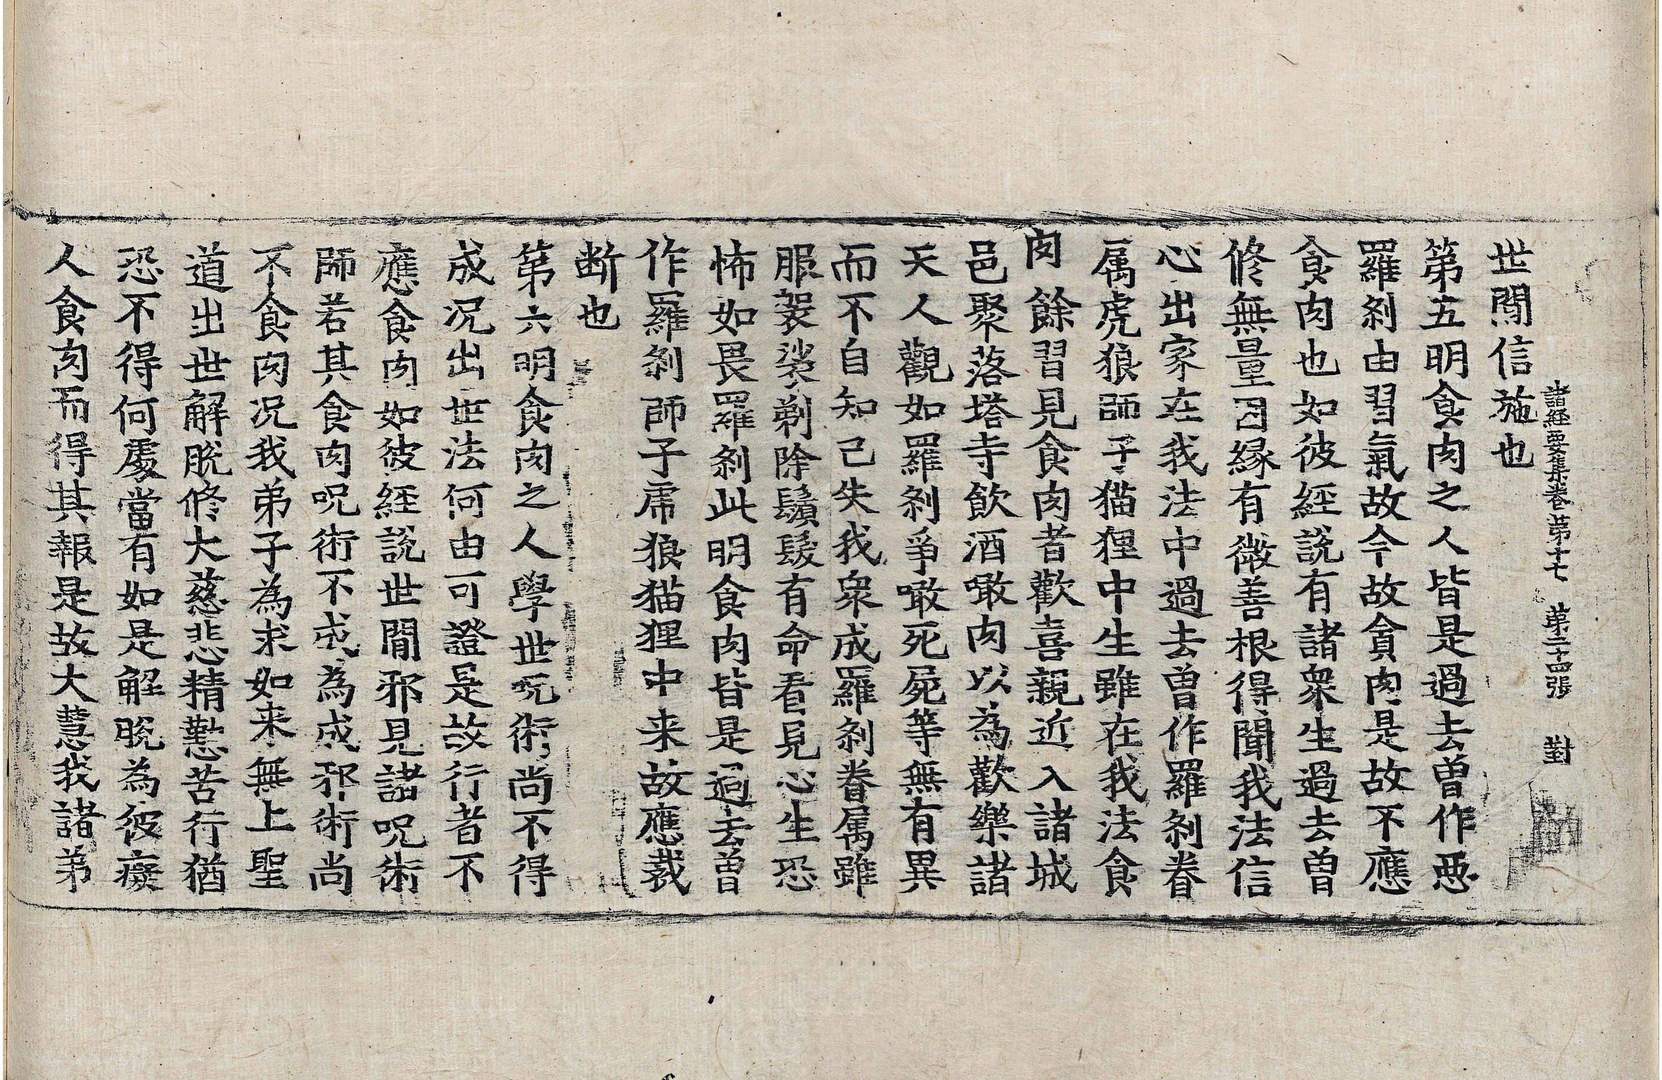 諸經要集卷第十七　第二十四張　對
世間信施也
第五明食肉之人皆是過去曽作惡
羅剎由習氣故今故貪肉是故不應
食肉也如彼經說有諸衆生過去曽
修無量因緣有微善根得聞我法信
心出家在我法中過去曽作羅剎眷
属虎狼師子猫狸中生雖在我法食
肉餘習見食肉者歡喜親近入諸城
邑聚落塔寺飲酒噉肉以為歡樂諸
天人觀如羅剎爭噉死屍等無有異
而不自知己失我衆成羅剎眷属雖
服袈裟剃除鬚髮有命看見心生恐
怖如畏羅剎此明食肉皆是過去曽
作羅剎師子虎狼猫狸中来故應裁
断也
第六明食肉之人學世呪術尚不得
成况出世法何由可證是故行者不
應食肉如彼經說世間邪見諸呪術
師若其食肉呪術不成為成邪術尚
不食肉况我弟子為求如来無上聖
道出世解脫修大慈悲精懃苦行猶
恐不得何處當有如是解脫為彼癡
人食肉而得其報是故大慧我諸弟